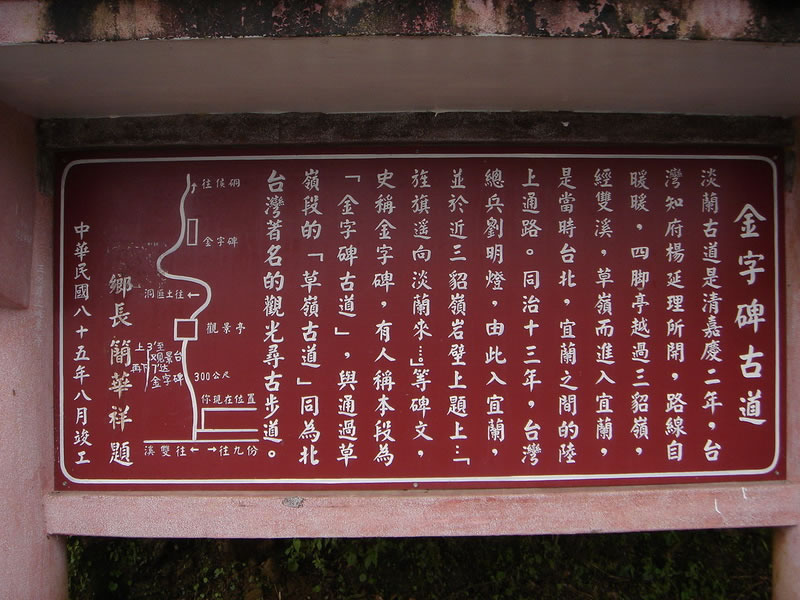 金字碑古道
淡蘭古道是清嘉慶二年，台
灣知府楊延理所開，路線自
暖暖，四腳亭越過三貂嶺，
經雙溪，草嶺而進入宜蘭，
是當時台北，宜蘭之間的陸
上通路。同治十三年，台灣
總兵劉明燈，由此入宜蘭，
並於近三貂嶺岩壁上題上…「
旌旗遥向淡蘭來…」等碑文，
史稱金字碑，有人稱本段為
「金字碑古道」，與通過草
嶺段的「草嶺古道」同為北
台灣著名的觀光尋古步道。
往侯硐
金字碑
洞匪土往←
觀景亭
上3'至
观景台
再下7'达
金字碑
300公尺
你現在位置
溪雙往← →往九份
鄉長 簡華祥題
中華民國八十五年八月竣工